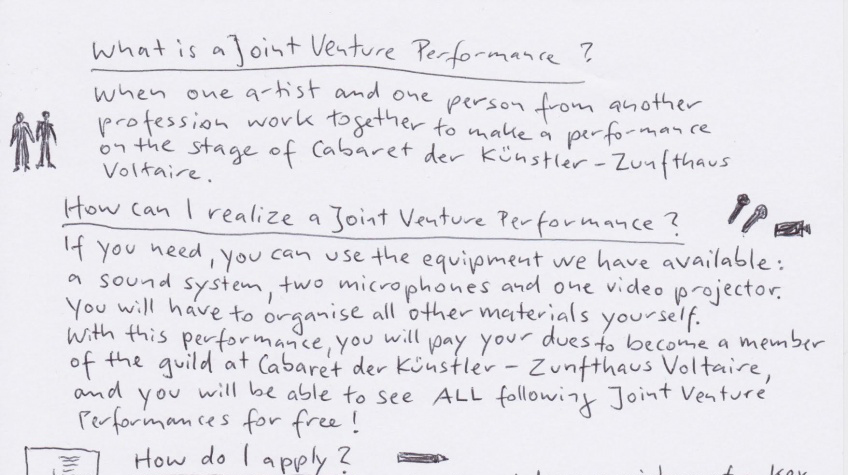 What is a Joint Venture Performance?
When one artist and one person from another
profession work together to make a performance
on the stage of Cabaret der Künstler – Zunfthaus
Voltaire.
How can I realize a Joint Venture Performance?
If you need, you can use the equipment we have available:
a sound system, two microphones and one video projector.
You will have to organise all other materials yourself.
With this performance, you will pay your dues to become a member
of the guild at Cabaret der Künstler – Zunfthaus Voltaire,
and you will be able to see ALL following Joint Venture
Performances for free!
How do I apply?